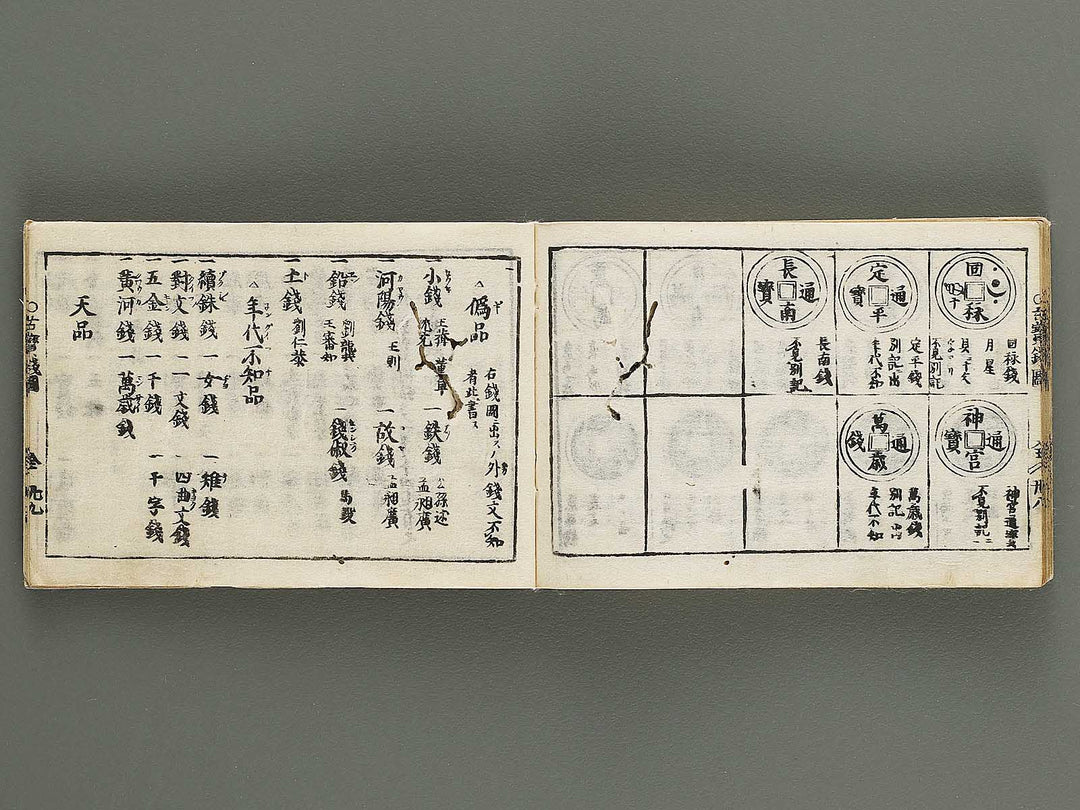 回
祿
回祿錢
月星
定
平
通
寶
定平錢
別記ニ出
年代不知
長
南
通
寶
長南錢
不見別記
神
宮
通
寶
神宮通寶
不見別記ニ
萬
歳
通
錢
萬歳錢
別記ニ出
年代不知
偽品
右錢圖ニ出スノ外錢文不知
者此ニ書ス
一小錢 董卓
一鉄錢 公孫述
孟昶廣
一河陽錢 王則
一故錢 孟昶廣
一鉛錢 劉龑
王審知
馬殷
一土錢 劉仁恭
年代不知品
一續銖錢 一女錢 一雉錢
一對文錢 一一文錢 一四曲文錢
一五金錢 一千錢 一千字錢
一黃河錢 一萬歳錢
天品